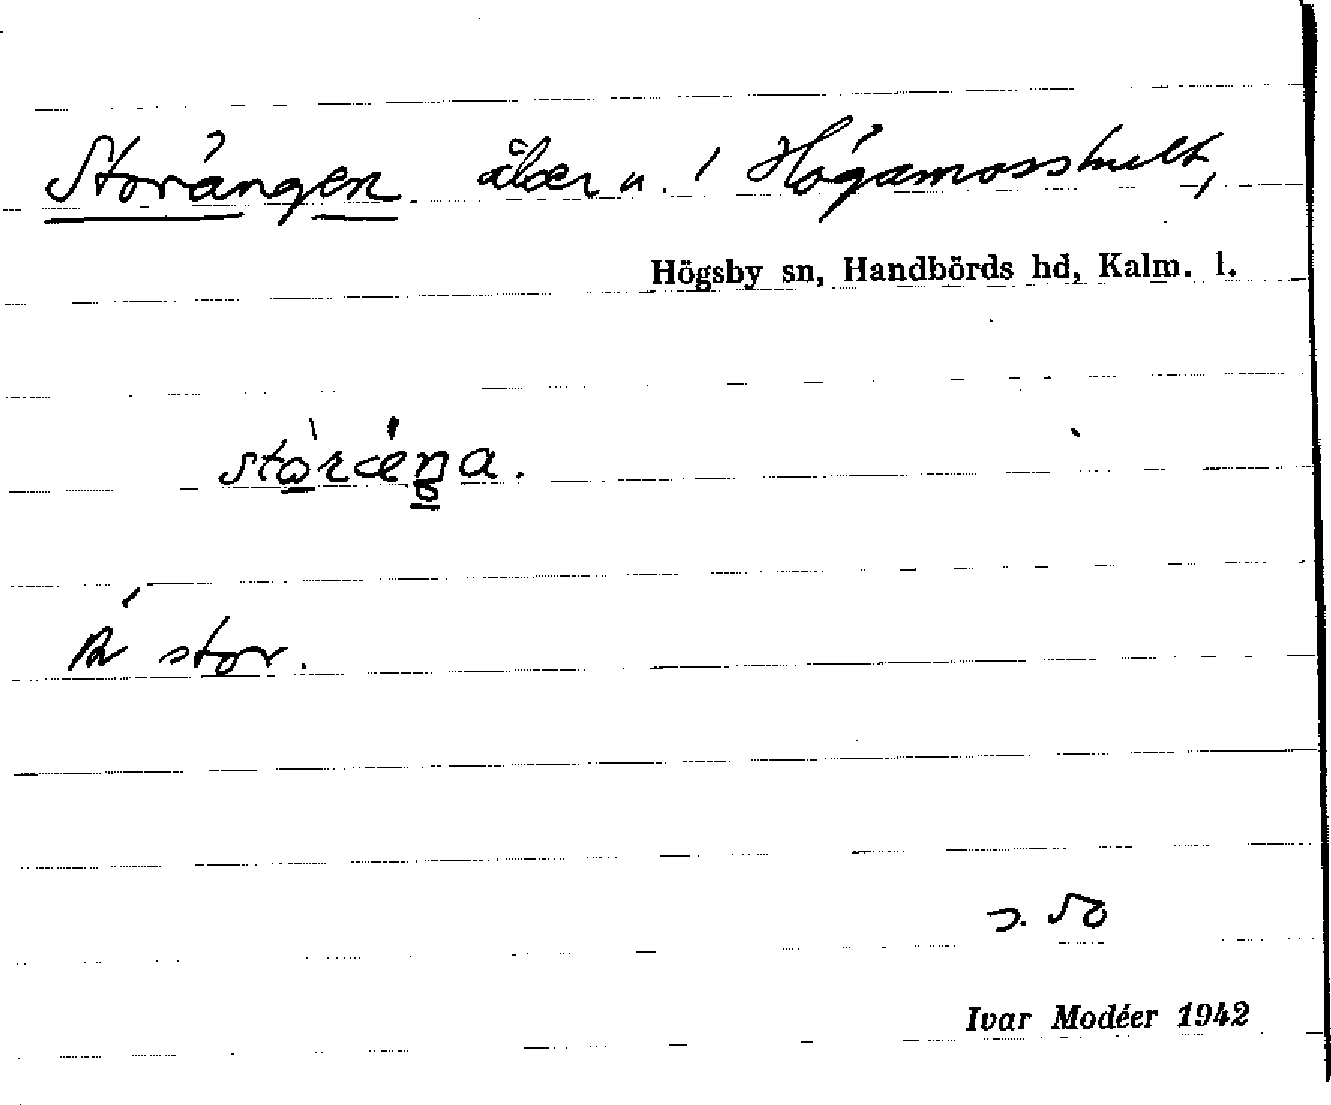 Storängen åker n. i Högamosshult,
Högsby sn, Handbörds hd, Kalm. l.
stóræŋa.
Är stor.
s. 50
Ivar Modéer 1942